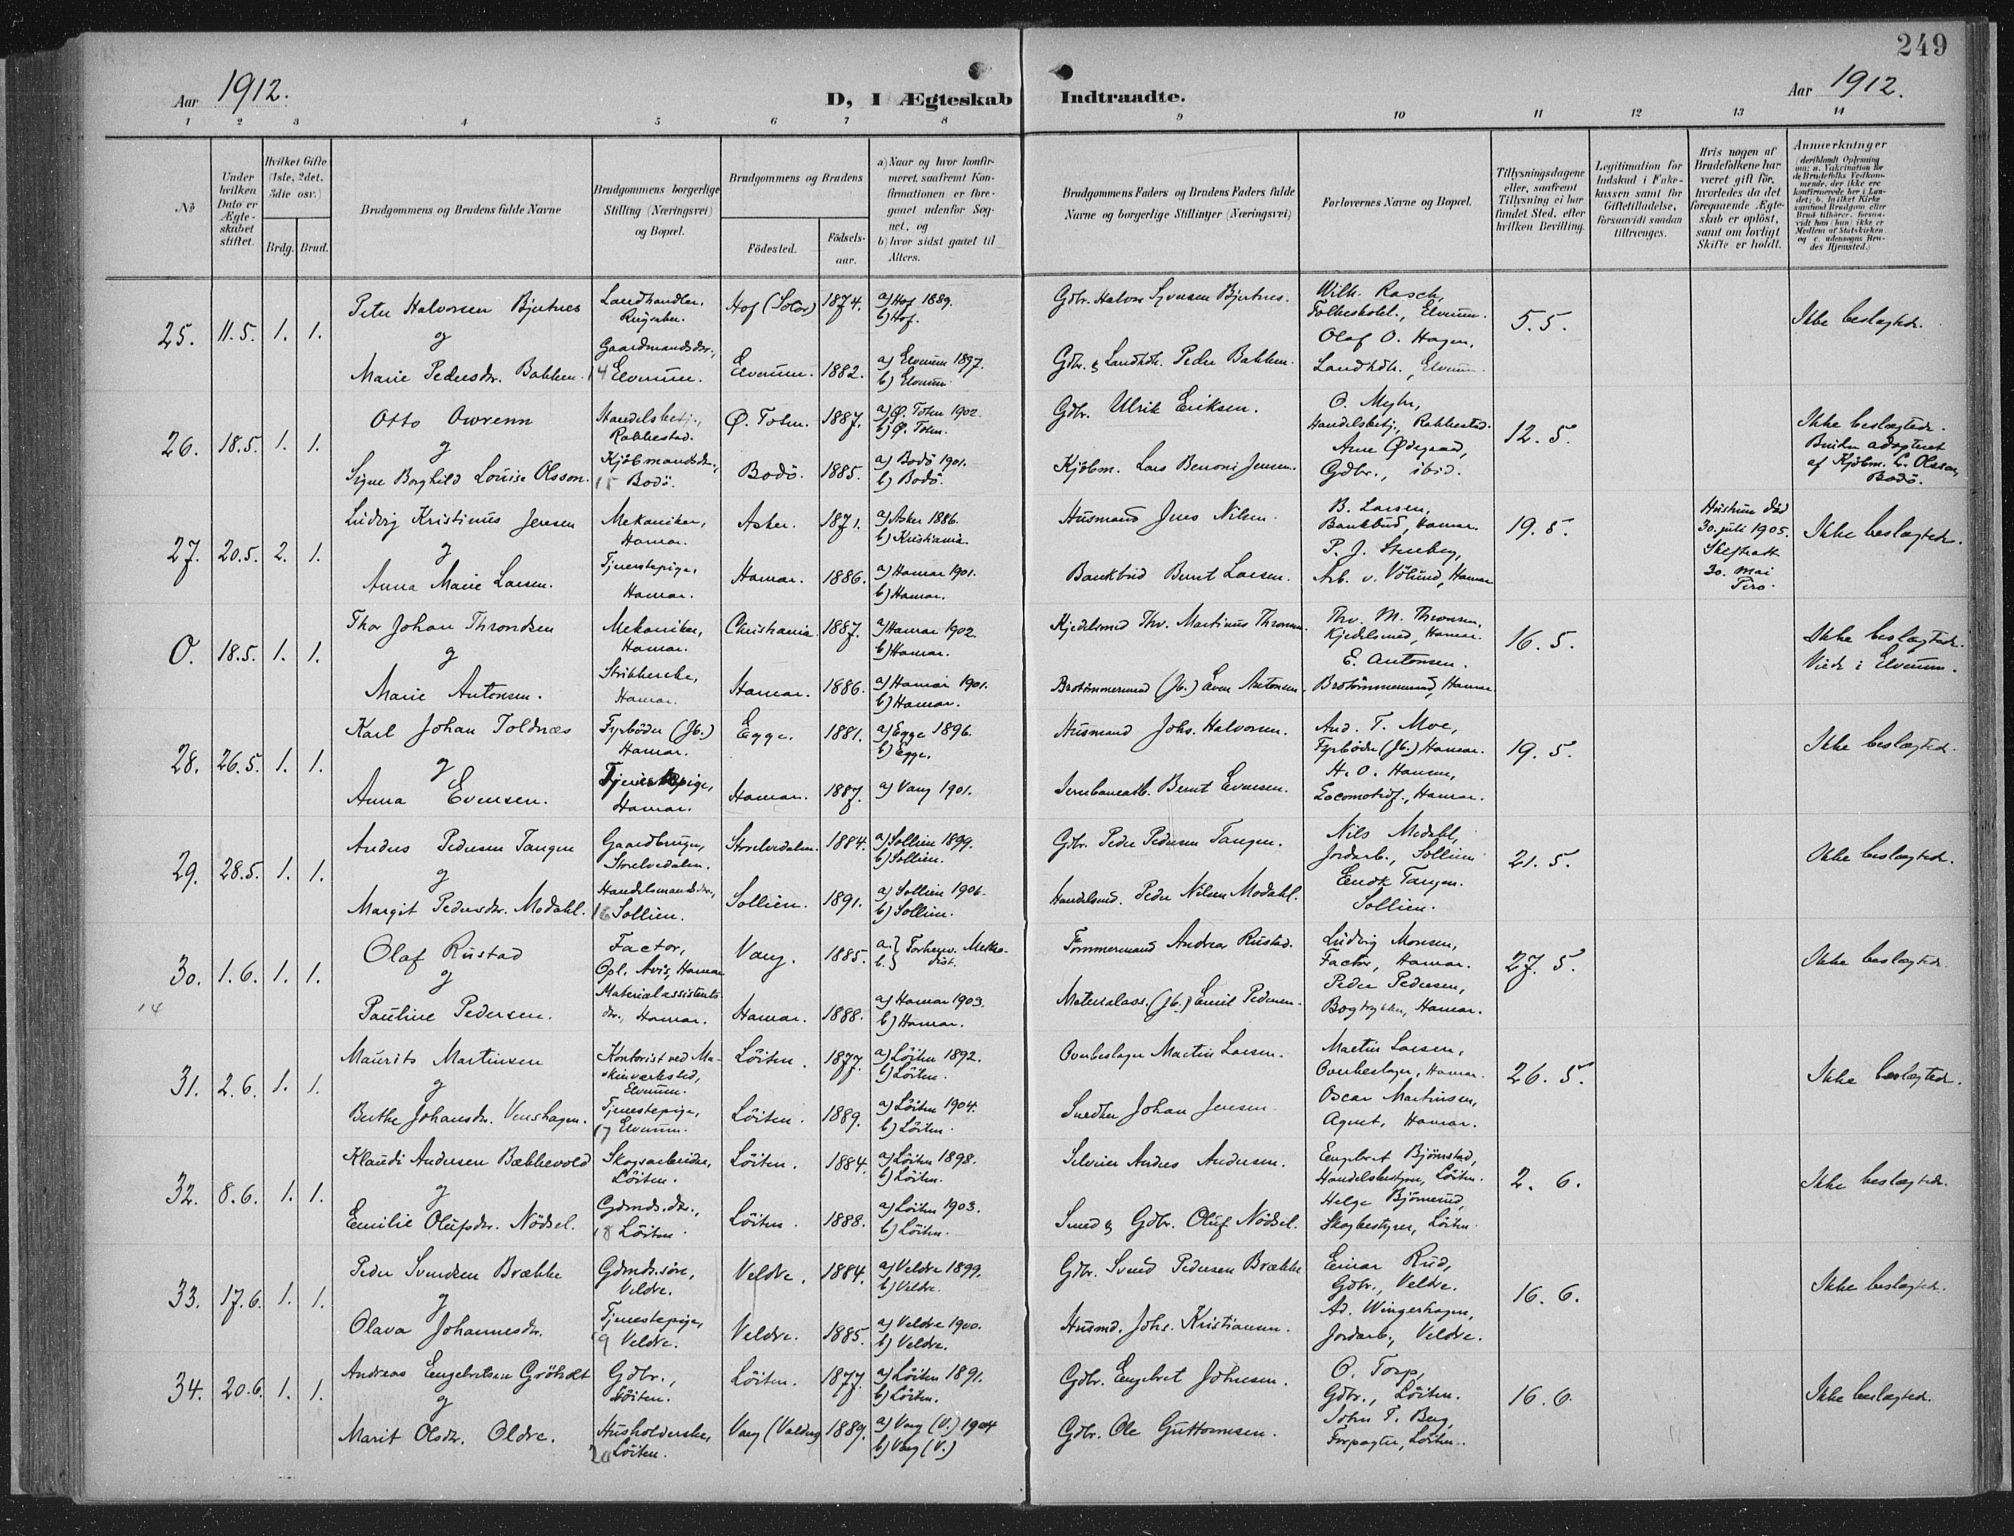 249
Aar 1912.
D, I Ægteskab Indtraadte.
Aar 1912.
1 2 3 4 5 6 7 8 9 10 11 12 13 14
No
Under hvilken Dato er Ægteskabet stiftet.
Hvilket Gifte (1ste, 2det, 3die osv.)
Brdg. Brud.
Brudgommens og Brudens fulde Navne
Brudgommens borgerlige Stilling (Næringsvei) og Bopæl.
Brudgommens og Brudens
Födested.
Födsels-aar.
a) Naar og hvor konfirmeret, saafremt Konfirmationen er foregaaet udenfor Sognet, og
b) hvor sidst gaaet til Alters.
Brudgommens Faders og Brudens Faders fulde Navne og borgerlige Stillinger (Næringsvei)
Forlovernes Navne og Bopæl.
Tillysningsdagene eller, saafremt Tillysning ei har fundet Sted, efter hvilken Bevilling.
Legitimation for Indskud i Enkekassen samt for Giftetilladelse, forsaavidt saadan tiltrænges.
Hvis nogen af Brudefolkene har været gift før, hvorledes da det foregaaende Ægteskab er oplöst, samt om lovligt Skifte er holdt.
Anmerkninger
25. 11.5. 1. 1.
Peter Halvorsen Bjertnes
og
Marie Pedersdr. Bakken.
Landhandler, Ringsaker.
Gaardmandsdr., Elverum.
14
Hof (Solør) 1874. a) Hof 1889. b) Hof.
Elverum. 1882. a) Elverum 1897. b) Elverum
Gdbr. Halvor Syversen Bjertnes.
Gdbr. & Landhdl. Peder Bakken.
Wilh. Rasch, Folkeskolel., Elverum.
Olaf O. Hagen, Landhdl., Elverum.
5.5.
Ikke beslægtede.
26. 18.5. 1. 1.
Otto Owrenn
og
Signe Borghild Louise Olsson.
Handelsbetj., Rakkestad.
Kjöbmandsdr., Bodö.
15
Ø. Toten. 1887. a) Ø. Toten 1902. b) Ø. Toten.
Bodö. 1885. a) Bodö 1901. b) Bodö.
Gdbr. Ulrik Eriksen.
Kjöbm. Lars Benoni Jensen.
O. Myhr, Handelsbetj., Rakkestad.
Arne Ødegaard, Gdbr., ibid.
12. 5.
Ikke beslægtede.
Bruden adopteret af Kjöbm. C. Olsson, Bodö.
27. 20.5. 2. 1.
Ludvig Kristinus Jensen
og
Anna Marie Larsen.
Mekaniker, Hamar.
Tjenestepige, Hamar.
Asker. 1871. a) Asker 1886. b) Kristiania.
Hamar. 1886. a) Hamar 1901. b) Hamar.
Husmand Jens Nilsen.
Bankbud Bernt Larsen.
B. Larsen, Bankbud, Hamar.
P. J. Stenberg, Arb. v. Vølund, Hamar
19. 5.
Hustrun död 30. juli 1905.
Skifteatt 30. mai
Ikke beslægtede.
0. 18.5. 1. 1.
Thor Johan Throndsen
og
Marie Antonsen.
Mekaniker, Hamar.
Strikkerske, Hamar.
Christiania. 1887. a) Hamar 1902. b) Hamar.
Hamar. 1886. a) Hamar 1901. b) Hamar.
Kjedelsmed Thv. Martinus Thronsen.
Brotömmermand (Jb.) Even Antonsen.
Thv. M. Thronsen, Kjedelsmed, Hamar.
E. Antonsen. Brotömmermand, Hamar
16. 5.
Ikke beslægtede.
Viede i Elverum.
28. 26.5. 1. 1.
Karl Johan Toldnæs
og
Anna Evensen.
Fyrböder (Jb.) Hamar.
Tjenestepige, Hamar.
Egge. 1881. a) Egge 1896. b) Egge.
Hamar. 1887. a) Vang 1901.
Husmand Johs. Halvorsen.
Jernbanearb. Bernt Evensen.
And. T. Moe, Fyrböder (Jb.) Hamar.
H. O. Hansen, Locomotivf., Hamar.
19. 5.
Ikke beslægtede.
29. 28.5. 1. 1.
Anders Pedersen Tangen
og
Margit Pedersdr. Modahl.
Gaardbruger, Storelvedalen.
Handelsmandsdr., Sollien.
16
Storelvedalen. 1884. a) Sollien 1899. b) Sollien.
Sollien. 1891. a) Sollien 1906. b) Sollien.
Gdbr. Peder Pedersen Tangen.
Handelsmd. Peder Nilsen Modahl.
Nils Modahl, Jordarb., Sollien
Endr. Tangen. Sollien.
21. 5.
Ikke beslægtede.
30. 1.6. 1. 1.
14
Olaf Rustad
og
Pauline Pedersen.
Factor, Opl. Avis, Hamar
Materialassistents dr., Hamar.
Vang. 1885. a. b.
Hamar. 1888. a) Hamar 1903. b) Hamar.
Tömmermand Andreas Rustad.
Materialass. (Jb.) Emil Pedersen.
Ludvig Monsen, Factor, Hamar.
Peder Pedersen, Bogtrykker, Hamar.
27. 5.
Ikke beslægtede.
31. 2.6. 1. 1.
Maurits Martinsen
og
Berthe Johansdr. Venshagen.
Kontorist ved Maskinverksted, Elverum.
Tjenestepige, Elverum.
17
Löiten. 1877. a) Löiten 1892. b) Löiten.
Löiten. 1889. a) Löiten 1904. b) Löiten.
Ovnbeslager Martin Larsen.
Snedker Johan Jensen.
Martin Larsen, Ovnbeslager, Hamar.
Oscar Martinsen, Agent, Hamar.
26. 5.
Ikke beslægtede.
32. 8.6. 1. 1.
Klaudi Andersen Bækkevold
og
Emilie Olufsdr. Nödsel.
Skogsarbeider, Löiten.
Gdmds. dr., Löiten.
18
Löiten. 1884. a) Löiten 1898. b) Löiten.
Löiten. 1888. a) Löiten 1903. b) Löiten.
Selveier Anders Andersen.
Smed & Gdbr. Oluf Nödsel.
Engebret Bjørnstad, Handelsbestyrer, Löiten.
Helge Björnerud, Skogbestyrer, Löiten.
2. 6.
Ikke beslægtede.
33. 17.6. 1. 1.
Peder Svendsen Brække
og
Olava Johannesdr.
Gdmds. sön, Veldre.
Tjenestepige, Veldre.
19
Veldre. 1884. a) Veldre 1899. b) Veldre.
Veldre. 1885. a) Veldre 1900. b) Veldre.
Gdbr. Svend Pedersen Brække
Husmd. Johs. Kristiansen.
Einar Rud, Gdbr., Veldre.
Ad. Wingerhagen, Jordarb., Veldre.
16. 6.
Ikke beslægtede.
34. 20.6. 1. 1.
Andreas Engebretsen Gröholt
og
Marit Olsdr. Oldre.
Gdbr., Löiten.
Husholderske, Löiten.
20
Löiten. 1877. a) Löiten 1891. b) Löiten.
Vang (Valdres) 1889. a) Vang (V.) 1904 b) Vang (V.)
Gdbr. Engebret Johnsen.
Gdbr. Ole Guttormsen.
O. Torp, Gdbr., Löiten.
John T. Berg, Forpagter, Löiten.
16. 6.
Ikke beslægtede.